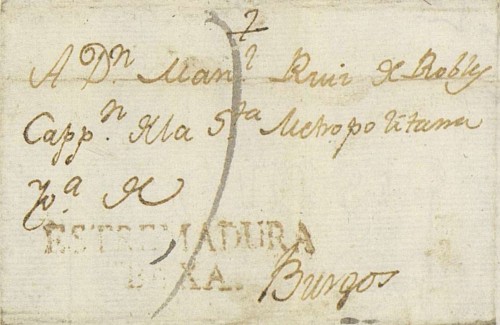 A Dn. Manl. Ruiz de Robles
Cappn. de la Sta. Metropolitana
Yga. de
ESTREMADURA
BAXA.
Burgos